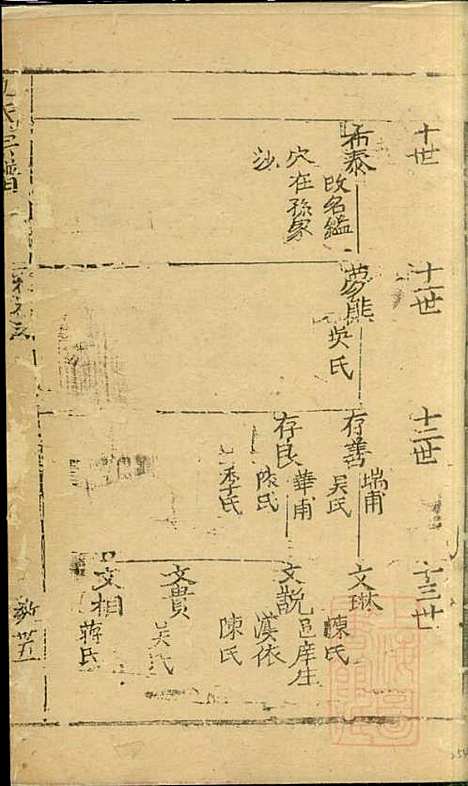 十世
希泰
改名鑑
穴在孫家
沙
十一世
夢熊
吳氏
十二世
存善
瑞甫
吳氏
存良
華甫
陳氏
季氏
十三世
文琳
陳氏
文說
邑庠生
漢依
陳氏
文貴
吳氏
文相
蔣氏
氏宗譜
卷之三